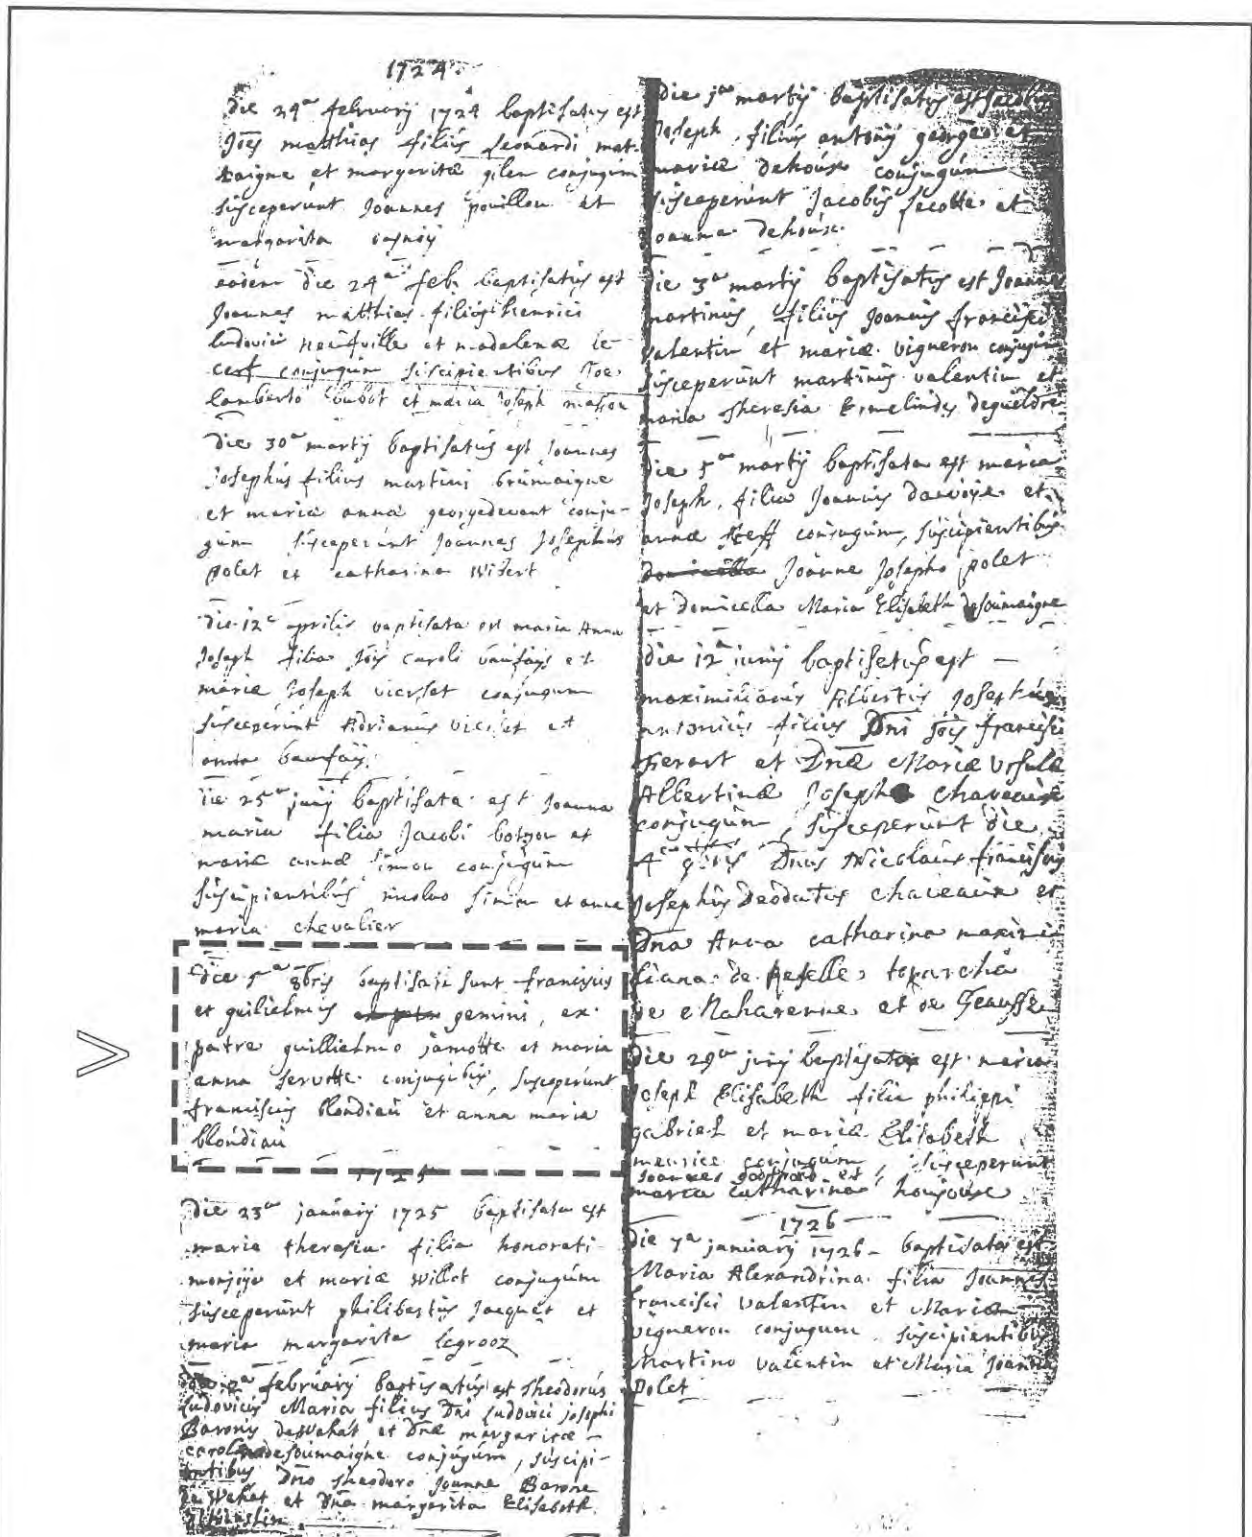 1724
die 24a februarij 1724 baptisatus est
Joes matthias filius Leonardi mat-
taigne et margaritæ gilen conjugum
susceperunt Joannes pouillon et
margarita
eadem die 24a feb. baptisatus est
Joannes matthias filius henrici
ludovici neufville et madalenæ le
cerf conjugum suscipientibus Joe
lamberto et maria Joseph masson
die 30a martij baptisatus est Joannes
Josephus filius martini brumaigne
et mariæ annæ georgedevant conju-
gum susceperunt Joannes Josephus
polet et catharina wisert
die 12a aprilis baptisata est maria Anna
Joseph filia Jois caroli baufays et
mariæ Joseph vierset conjugum
susceperunt Adrianus vierset et
anna baufays
die 25a junij baptisata est Joanna
maria filia Jacobi botson et
mariæ annæ simon conjugum
suscipientibus nicolao simon et anna
maria chevalier
die 5a 8bris baptisati sunt franciscus
et guilielmus gemini, ex
patre guillielmo jamotte et maria
anna servotte conjugibus, susceperunt
franciscus blondiau et anna maria
blondiau
1725
die 23a januarij 1725 baptisata est
maria theresia filia honorati
monjoye et mariæ willet conjugum
susceperunt philibertus Jacquet et
maria margarita legrooz
die 2a februarij baptisatus est theodorus
Ludovicus Maria filius Dni Ludovici josephi
Baronis dewahat et Dnæ margaritæ
carolinæ desoumaigne conjugum, suscipi-
entibus Dno theodoro Joanne Barone
de wahat et Dna margarita Elisabeth
die 1a martij baptisatus est Jacobus
Joseph, filius antonij george et
mariæ dehoux conjugum
susceperunt Jacobus lecotte et
Joanna dehoux.
die 3a martij baptisatus est Joannes
martinus, filius Joannis francisci
valentin et mariæ vigneron conjugum
susceperunt martinus valentin et
maria theresia Ermelindis degueldre
die 5a martij baptisata est maria
Joseph, filia Joannis davoye et
annæ conjugum, suscipientibus
domicella Joanne Josepho polet
et domicella Maria Elisabeth desoumaigne
die 12a junij baptisatus est —
maximilianus Albertus Josephus
antonius filius Dni Jois francisci
fierart et Dnæ Mariæ Ursulæ
Albertinæ Joseph chaveaux
conjugum, susceperunt die
4a Dnus Nicolaus franciscus
Josephus Deodatus chaveaux et
Dna Anna catharina maximi-
liana de Reselle toparcha
de Maharenne et de Geausse
die 29a junij baptisata est maria
Joseph Elisabeth filia philippi
gabriel et mariæ Elisabeth
meurice conjugum, susceperunt
Joannes et
maria catharina houjoux
1726
die 7a januarij 1726 — baptisata est
Maria Alexandrina filia Joannis
francisci valentin et Mariæ
vigneron conjugum suscipientibus
Martino valentin et Maria Joanna
Polet